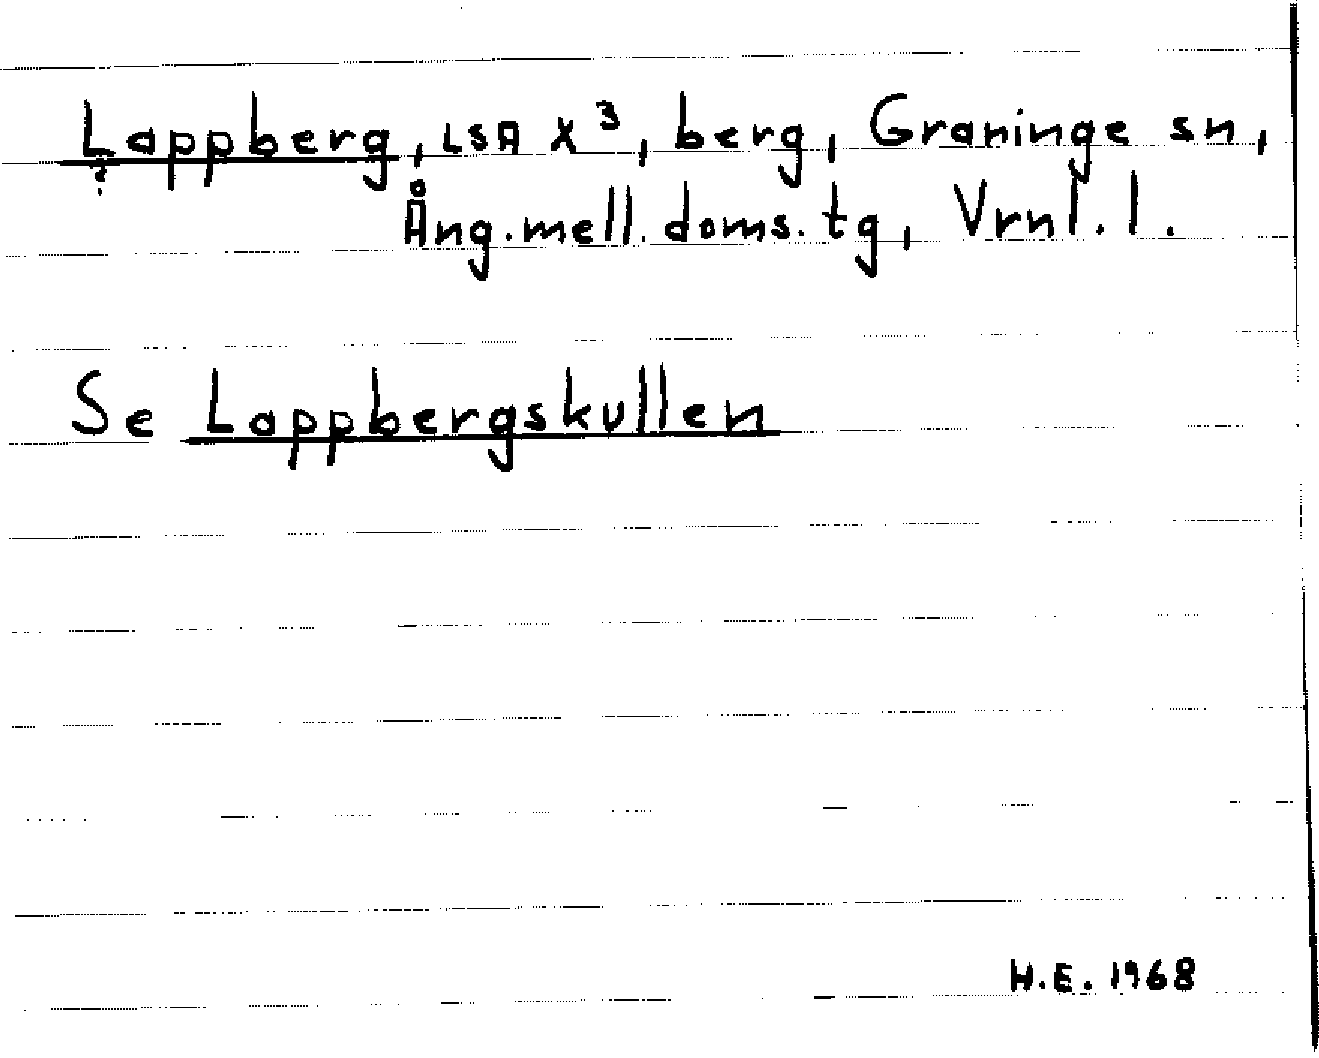 Lappberg, LSA X³, berg, Graninge sn,
?
Ång.mell.doms.tg, Vrnl.l.
Se Lappbergskullen
H.E. 1968